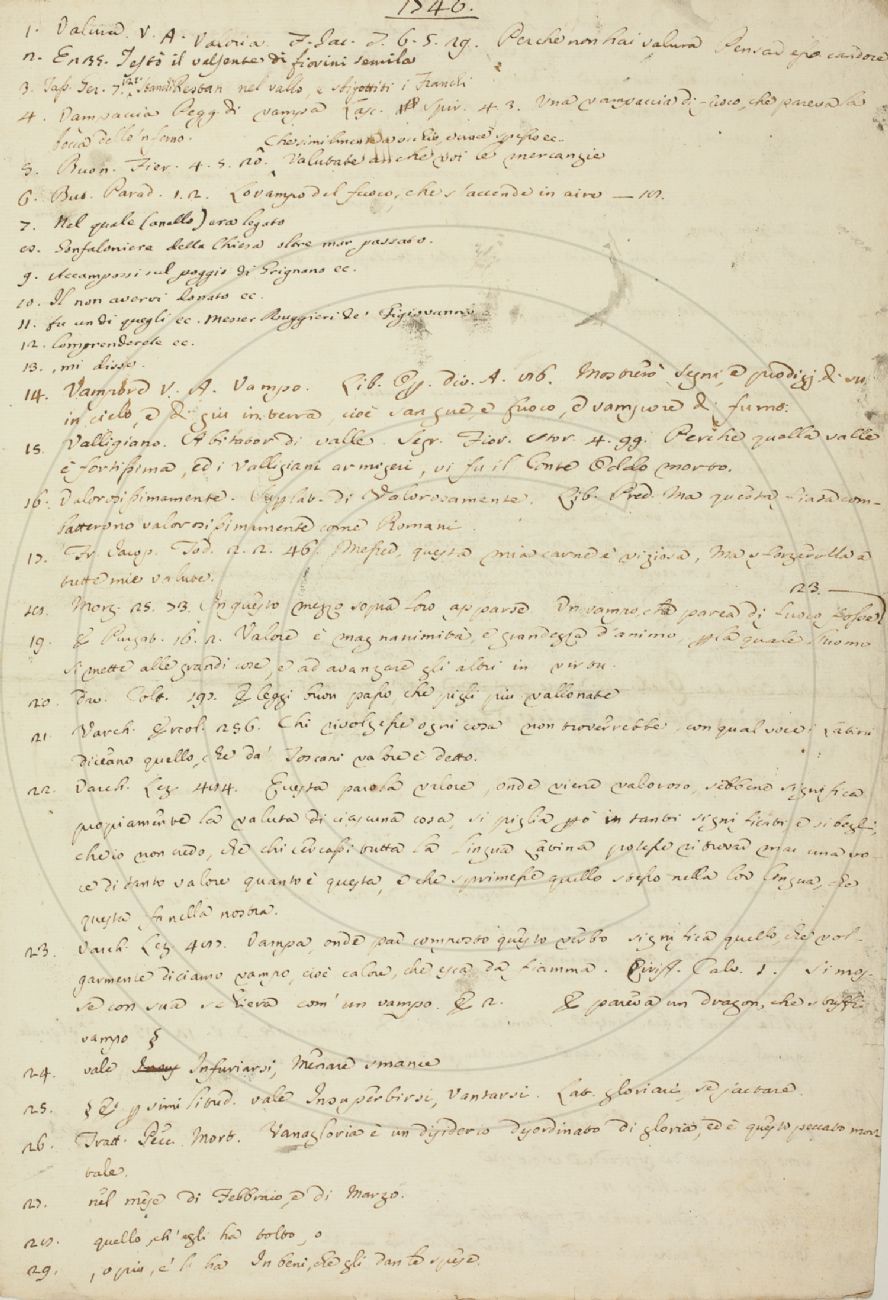 1746.
1. Valura. V. A. Valoria F. Jac. T. 6. 5. 29. Perche non hai valura Pensar
2. E n 35. Testò il valsente di fiorini semila
3. Tass. Ger. nel vallo, e sbigottiti i Franchi
4. Vampaccia Pegg. di vampa Lasc. Spir. 4. 3. Una vampaccia di fuoco, che pareva la
bocca dello 'nferno.
5. Buon. Fier. 4. 5. 20. Valutate anche voi le mercanzie
6. But. Parad. 1. 2. Lo vampo del fuoco, che s'accende in aire — 18.
7. Nel quale (anello) era legato
8. Gonfaloniere della Chiesa oltre mar passato.
9. Accampossi sul poggio di Grignano ec.
10. Il non avervi donato ec.
11. fu un di quegli ec. Messer Ruggieri de' Figiovanni
12. Comprenderete ec.
13. , mi disse.
14. Vampore V. A. Vampo. Lib. Op. div. A. 186. Mostrerò segni, e prodigj di su
in cielo, e di giù in terra, cioè sangue e fuoco, e vampore di fumo.
15. Valligiano. Abitator di valle. Segr. Fior. Stor. 4. 99. Perchè quella valle
è fortissima, ed i Valligiani armigeri, vi fu il Conte Oddo morto.
16. Valorosissimamente. Superlat. di Valorosamente. Lib. Pred. Ma questa fiata com-
batterono valorosissimamente come Romani.
17. Fr. Jacop. Tod. 2. 2. 46. questa mia carne è viziosa, Ma sforzerolla a
tutte mie valute.
23.
18. Morg. 25. 73. In questo mezzo sopra loro apparse Un vampo, che parea di fuoco
19. E Purgat. 16. 2. Valore è magnanimità, e grandezza d'animo, per la quale l'uomo
si mette alle grandi cose, e ad avanzare gli altri in virtù.
20. Dav. Colt. 197. E leggi buon passo che pigli più vallonate
21. Varch. Ercol. 256. Chi rivolgesse ogni cosa non troverrebbe, con qual voce i Latini
diceano quello, che da' Toscani valore è detto.
22. Varch. Lez. 484. Questa parola valore, onde viene valoroso, sebbene significa
propiamente la valuta di ciascuna cosa, si piglia però in tanti significati e sì begli,
che io non credo, che chi cercassi tutta la lingua Latina potesse ritrovar mai una vo-
ce di tanto valore quanto è questa, e che sprimesse quello stesso nella lor lingua, che
questa fa nella nostra.
23. Varch. Lez. 487. Vampa, onde par composto questo verbo significa quello, che vol-
garmente diciamo vampo, cioè calore, che esca da fiamma. Ciriff. Calv. 1. Si mos-
se con sua schiera com' un vampo. E 2. E pareva un dragon, che
vampo §
24. vale Infuriarsi, Menare smanie
25. § E per similitud. vale Insuperbirsi, Vantarsi. Lat. gloriari, se jactare.
26. Tratt. Pecc. Mort. Vanagloria è un disiderio disordinato di gloria, ed è questo peccato mor-
tale.
27. nel mese di Febbraio, e di Marzo.
28. quello, ch' egli ha tolto, o
29. , o più, e' li ha In beni, che gli dan le spese.